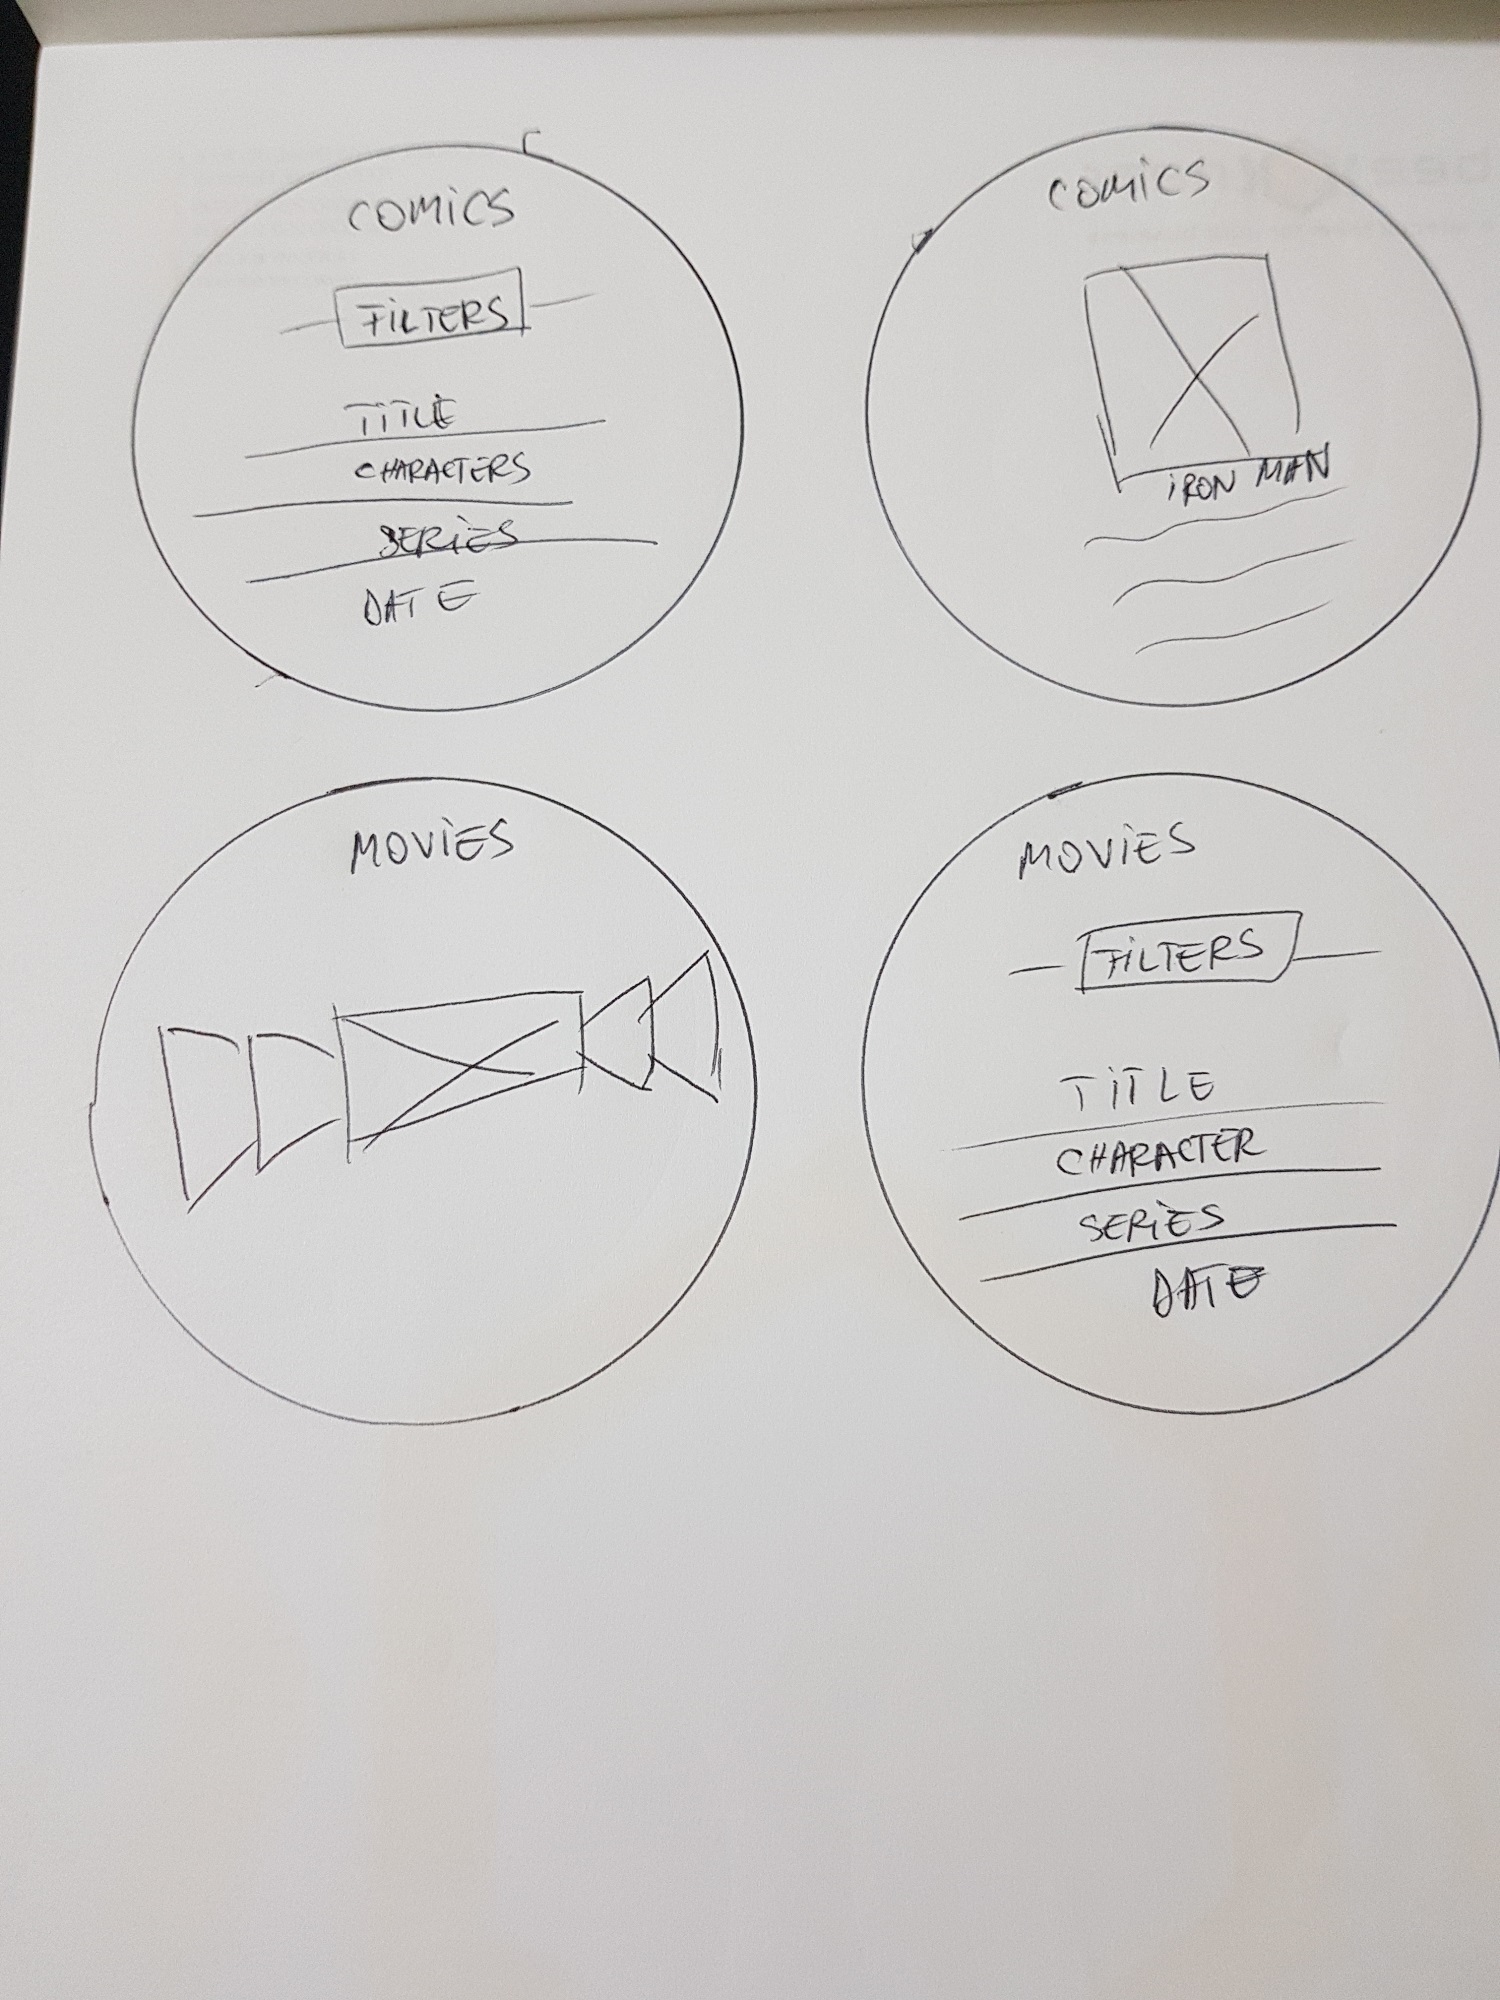 COMICS
FILTERS
TITLE
CHARACTERS
SERIES
DATE
COMICS
IRON MAN
MOVIES
MOVIES
FILTERS
TITLE
CHARACTER
SERIES
DATE